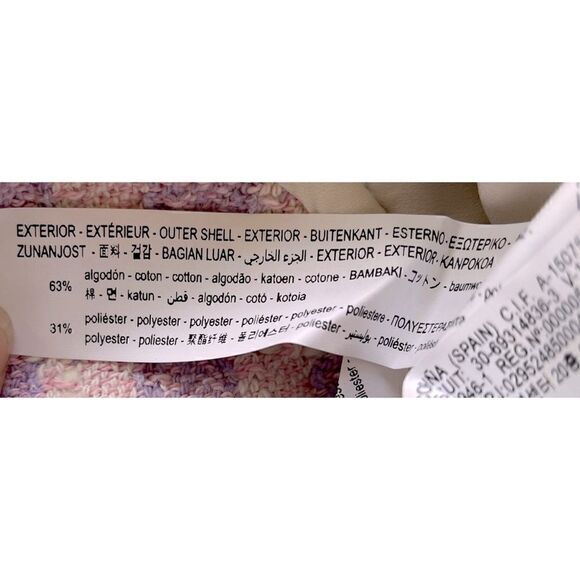 EXTERIOR - EXTÉRIEUR - OUTER SHELL - EXTERIOR - BUITENKANT - ESTERNO - ΕΞΩΤΕΡΙΚΟ -
ZUNANJOST - 面料 - 겉감 - BAGIAN LUAR - الجزء الخارجي - EXTERIOR - EXTERIOR - KANPOKOA
63% algodón - coton - cotton - algodão - katoen - cotone - BAMBAKI - コットン - baumwo
棉 - 면 - katun - قطن - algodón - cotó - kotoia
31% poliéster - polyester - polyester - poliéster - polyester - poliestere - ΠΟΛΥΕΣΤΕΡΑΣ
polyester - poliester - 聚酯纤维 - 폴리에스터 - poliester - بوليستر - poliéster - polièster
(SPAIN) C.I.F. A-1507